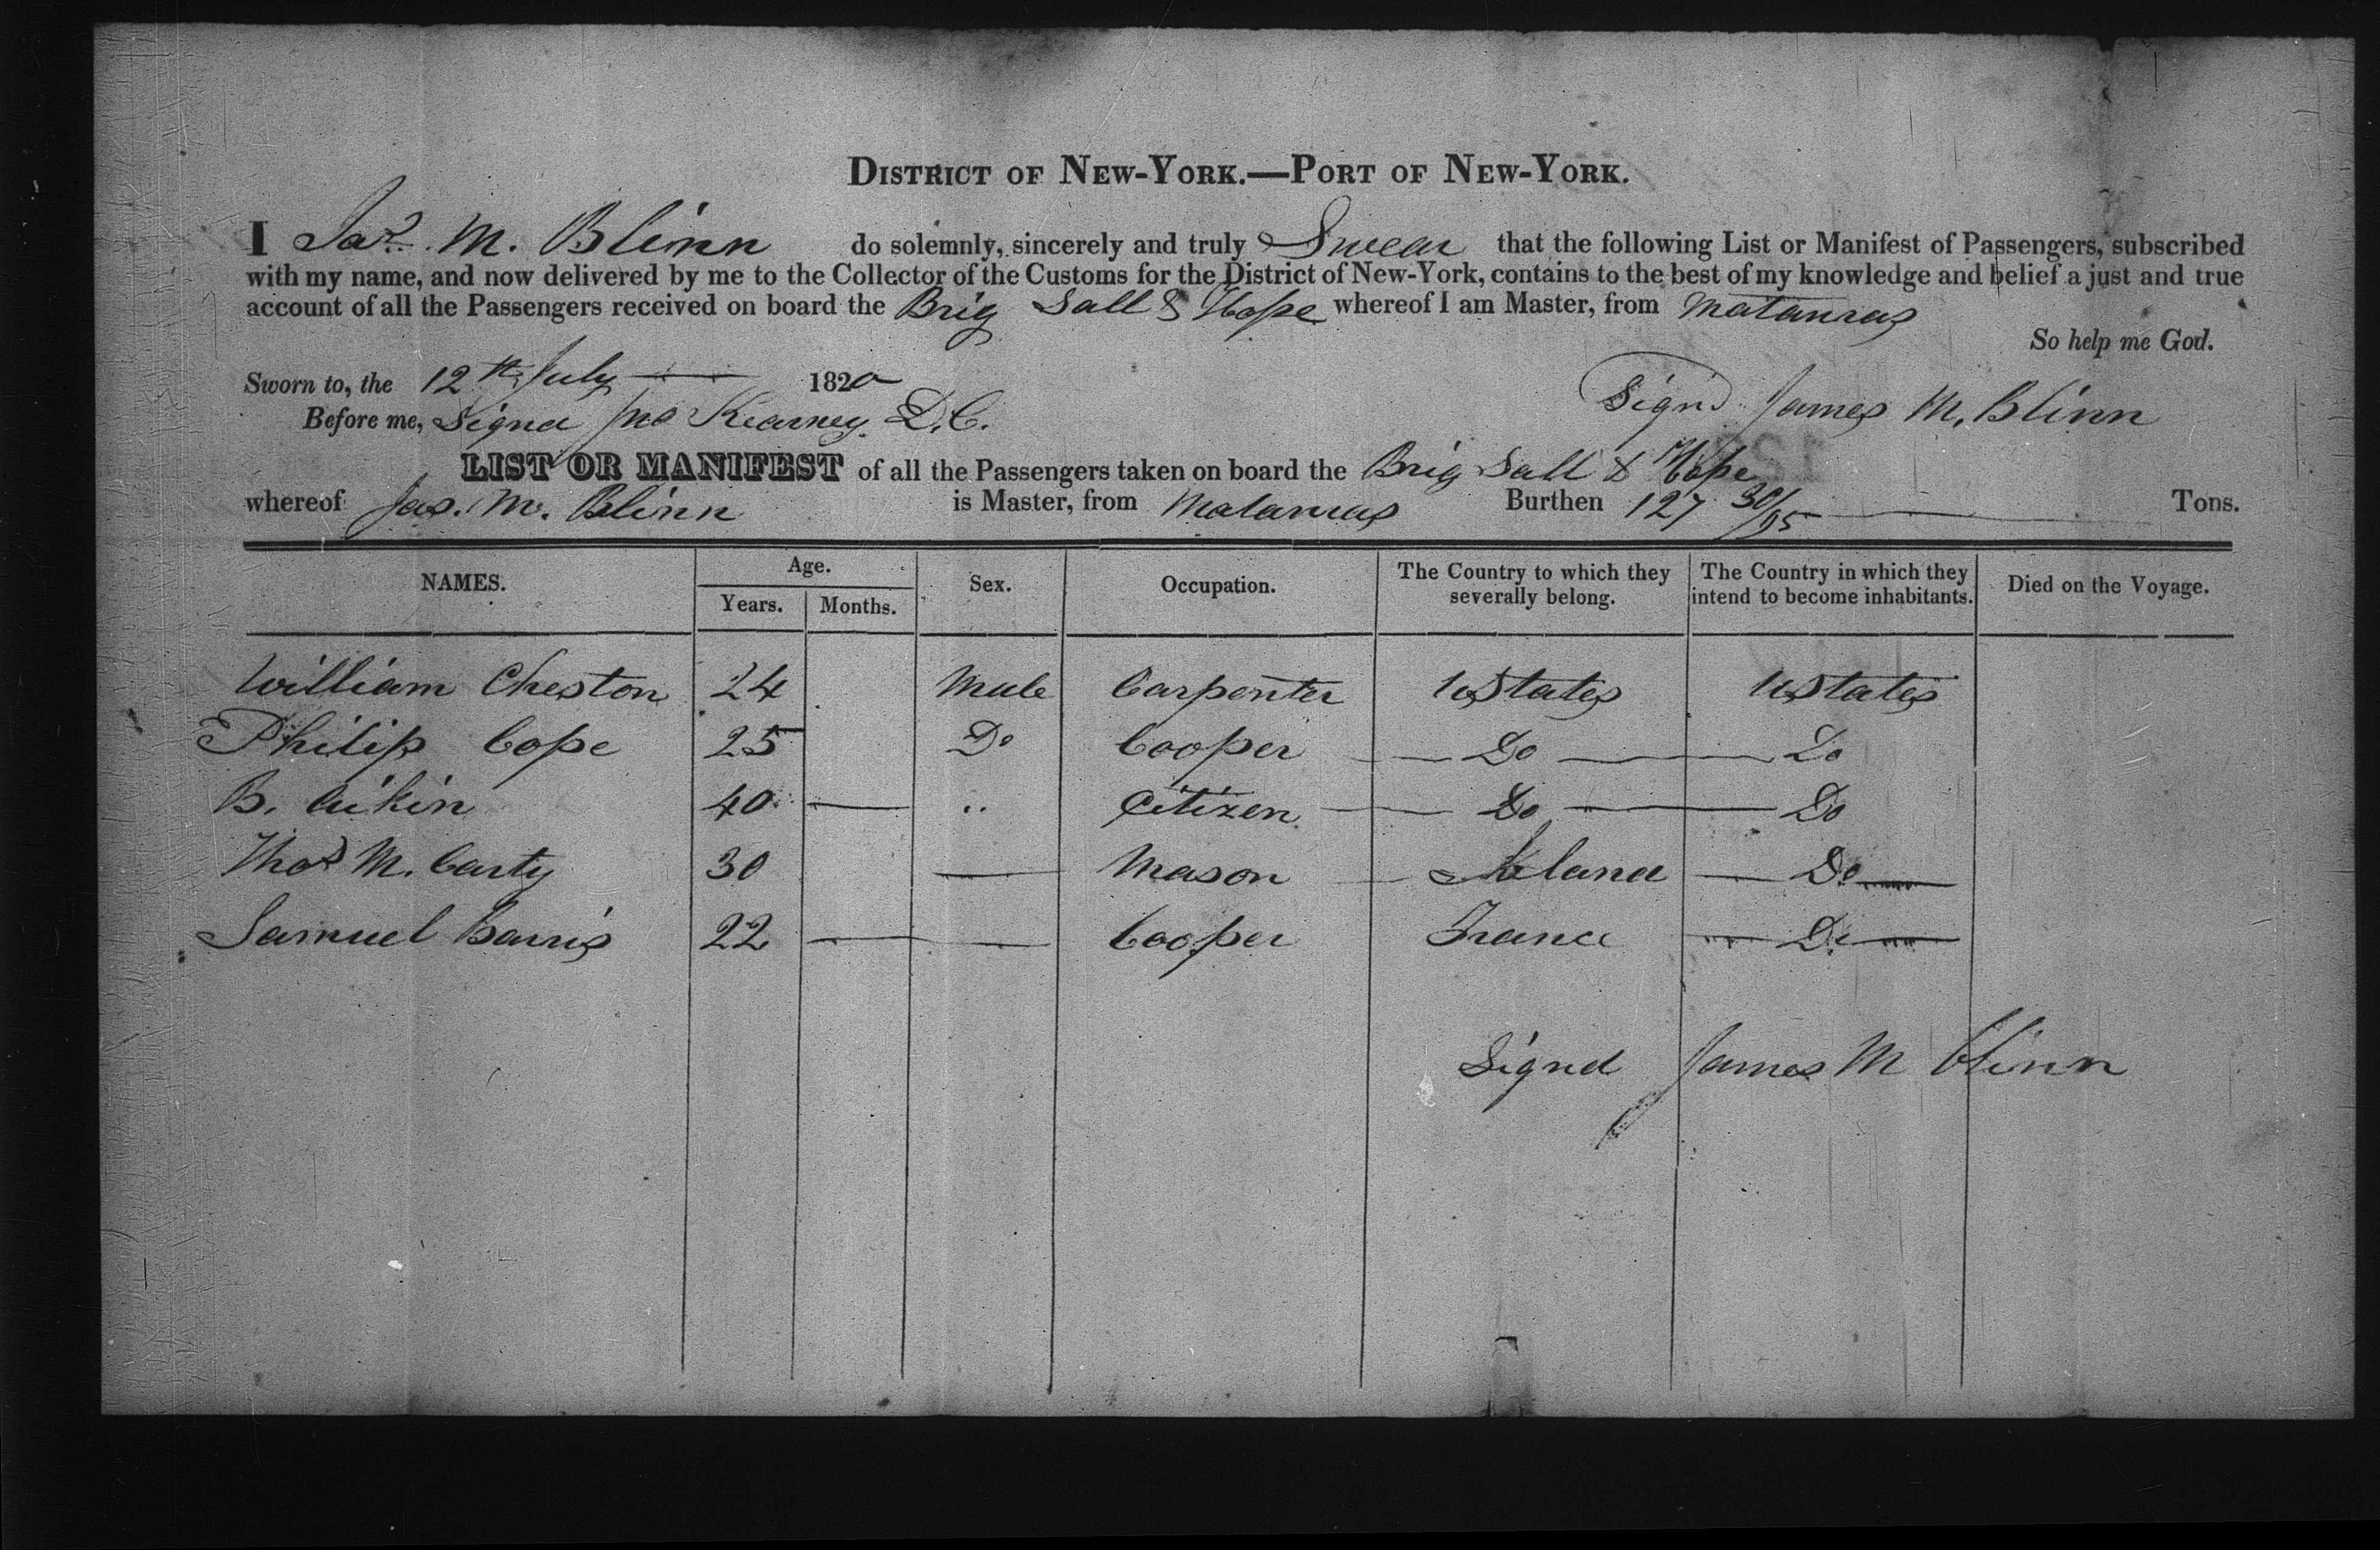 DISTRICT OF NEW-YORK.—PORT OF NEW-YORK.
I Jas. M. Blinn do solemnly, sincerely and truly Swear that the following List or Manifest of Passengers, subscribed
with my name, and now delivered by me to the Collector of the Customs for the District of New-York, contains to the best of my knowledge and belief a just and true
account of all the Passengers received on board the Brig Sall & Hope whereof I am Master, from Matanzas
So help me God.
Sworn to, the 12th July 1820
Signd James M. Blinn
Before me, Signed Jno Kearney. D.C.
LIST OR MANIFEST of all the Passengers taken on board the Brig Sall & Hope
whereof Jas. M. Blinn is Master, from Matanzas Burthen 127 30/95 Tons.
NAMES. Age. Years. Months. Sex. Occupation. The Country to which they severally belong. The Country in which they intend to become inhabitants. Died on the Voyage.
William Cheston 24 Male Carpenter UStates UStates
Philip Cope 25 Do Cooper — Do — Do
B. Aikin 40 — " Citizen — Do — Do
Thos M. Carty 30 — Mason — Ireland — Do —
Samuel Barris 22 — — Cooper France " Do "
Signd James M Blinn